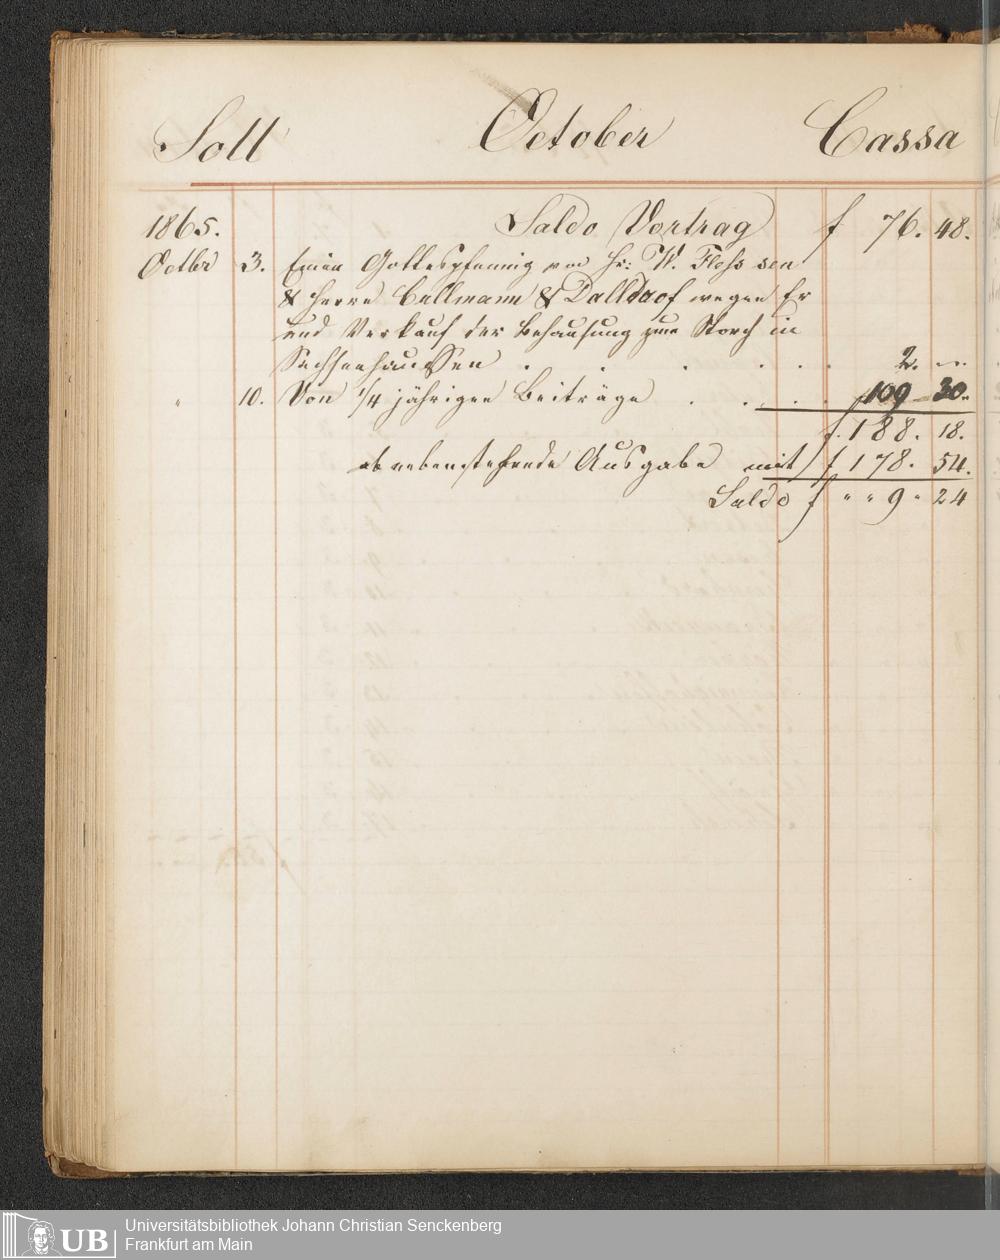 Soll October Cassa
1865. Saldo Vortrag f 76. 48.
Octbr 3. Einen Gottespfennig von Hr: W. Flesh sen
& Herrn Bellmann & Dalldorf wegen Er
und Verkauf der Behausung zum Storch in
Sachsenhaussen . . . . . 2. "
" 10. Von 1/4 jährigen Beiträge . . . . f 109 30.
f. 188. 18.
ab nebenstehende Ausgabe mit f 178. 54.
Saldo f " " 9 " 24
Universitätsbibliothek Johann Christian Senckenberg
Frankfurt am Main
UB